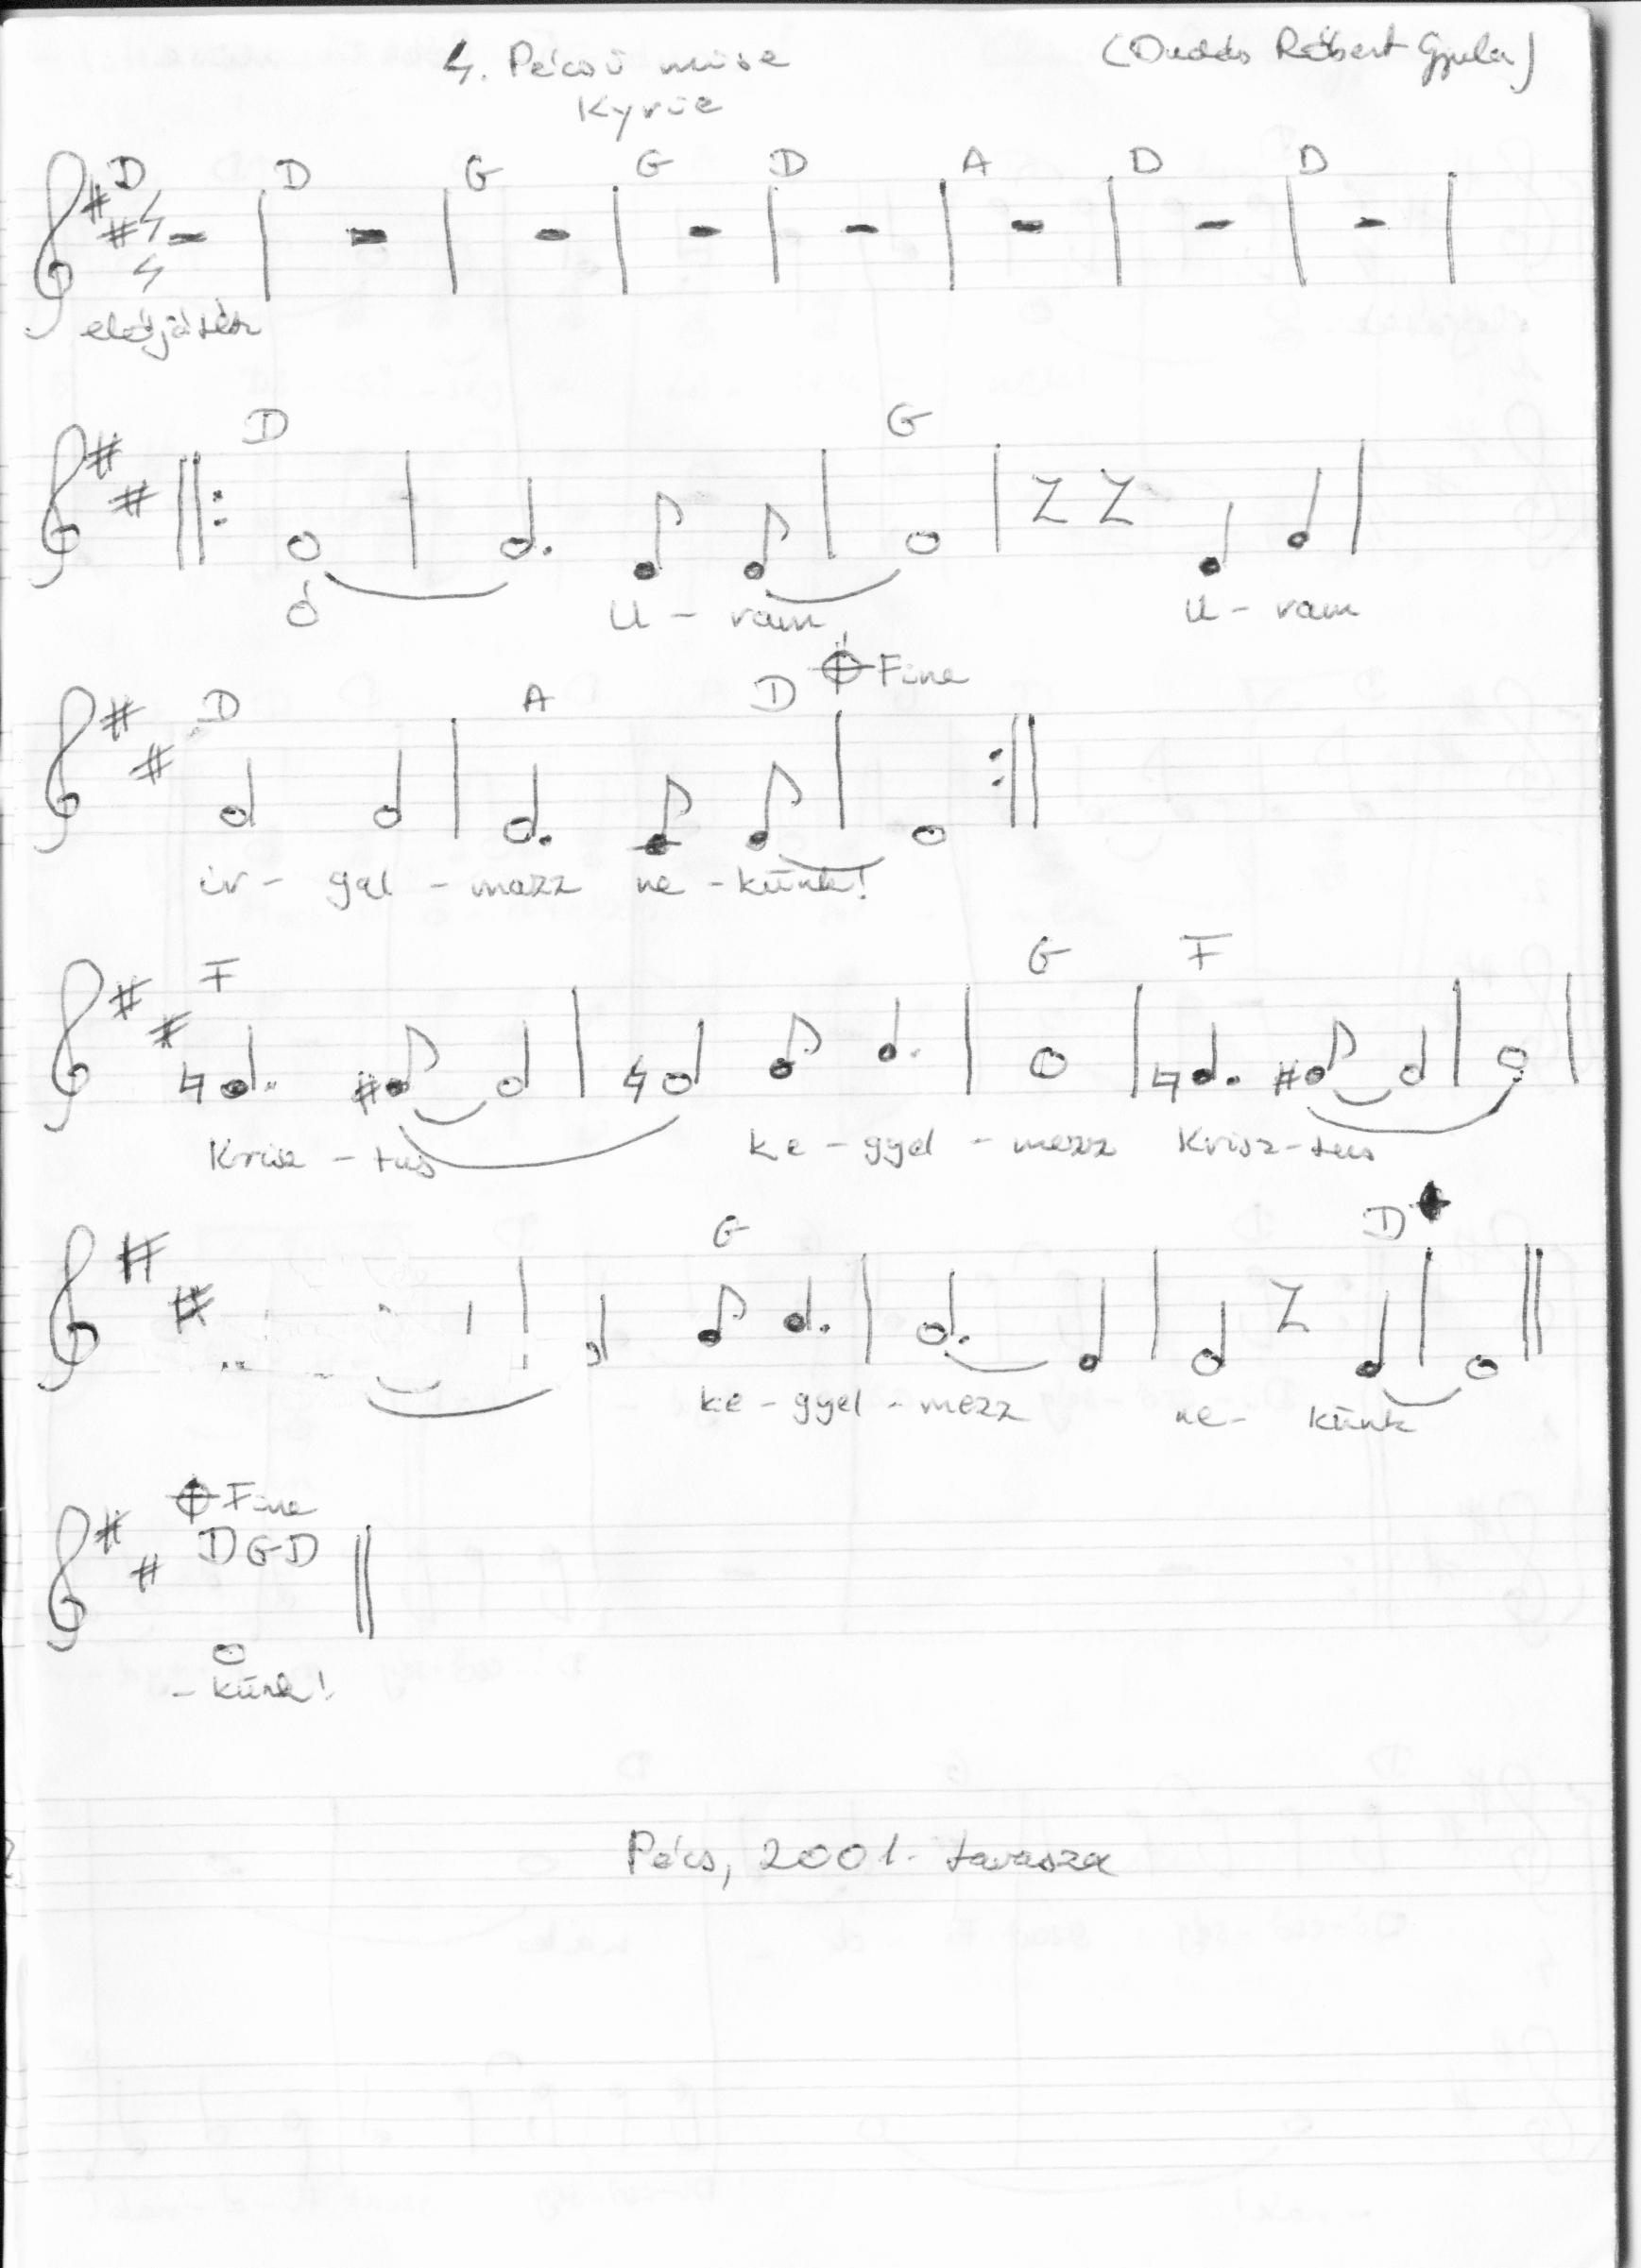 4. Pécsi mise (Dudás Róbert Gyula)
Kyrie
D D G G D A D D
4
4
előjáték
D G
Ó U - ram U - ram
D A D Fine
ir - gal - mazz ne - künk!
F G F
Krisz - tus ke - gyel - mezz Krisz - tus
G D
ke - gyel - mezz ne - künk
Fine
D G D
- künk!
Pécs, 2001. tavasza